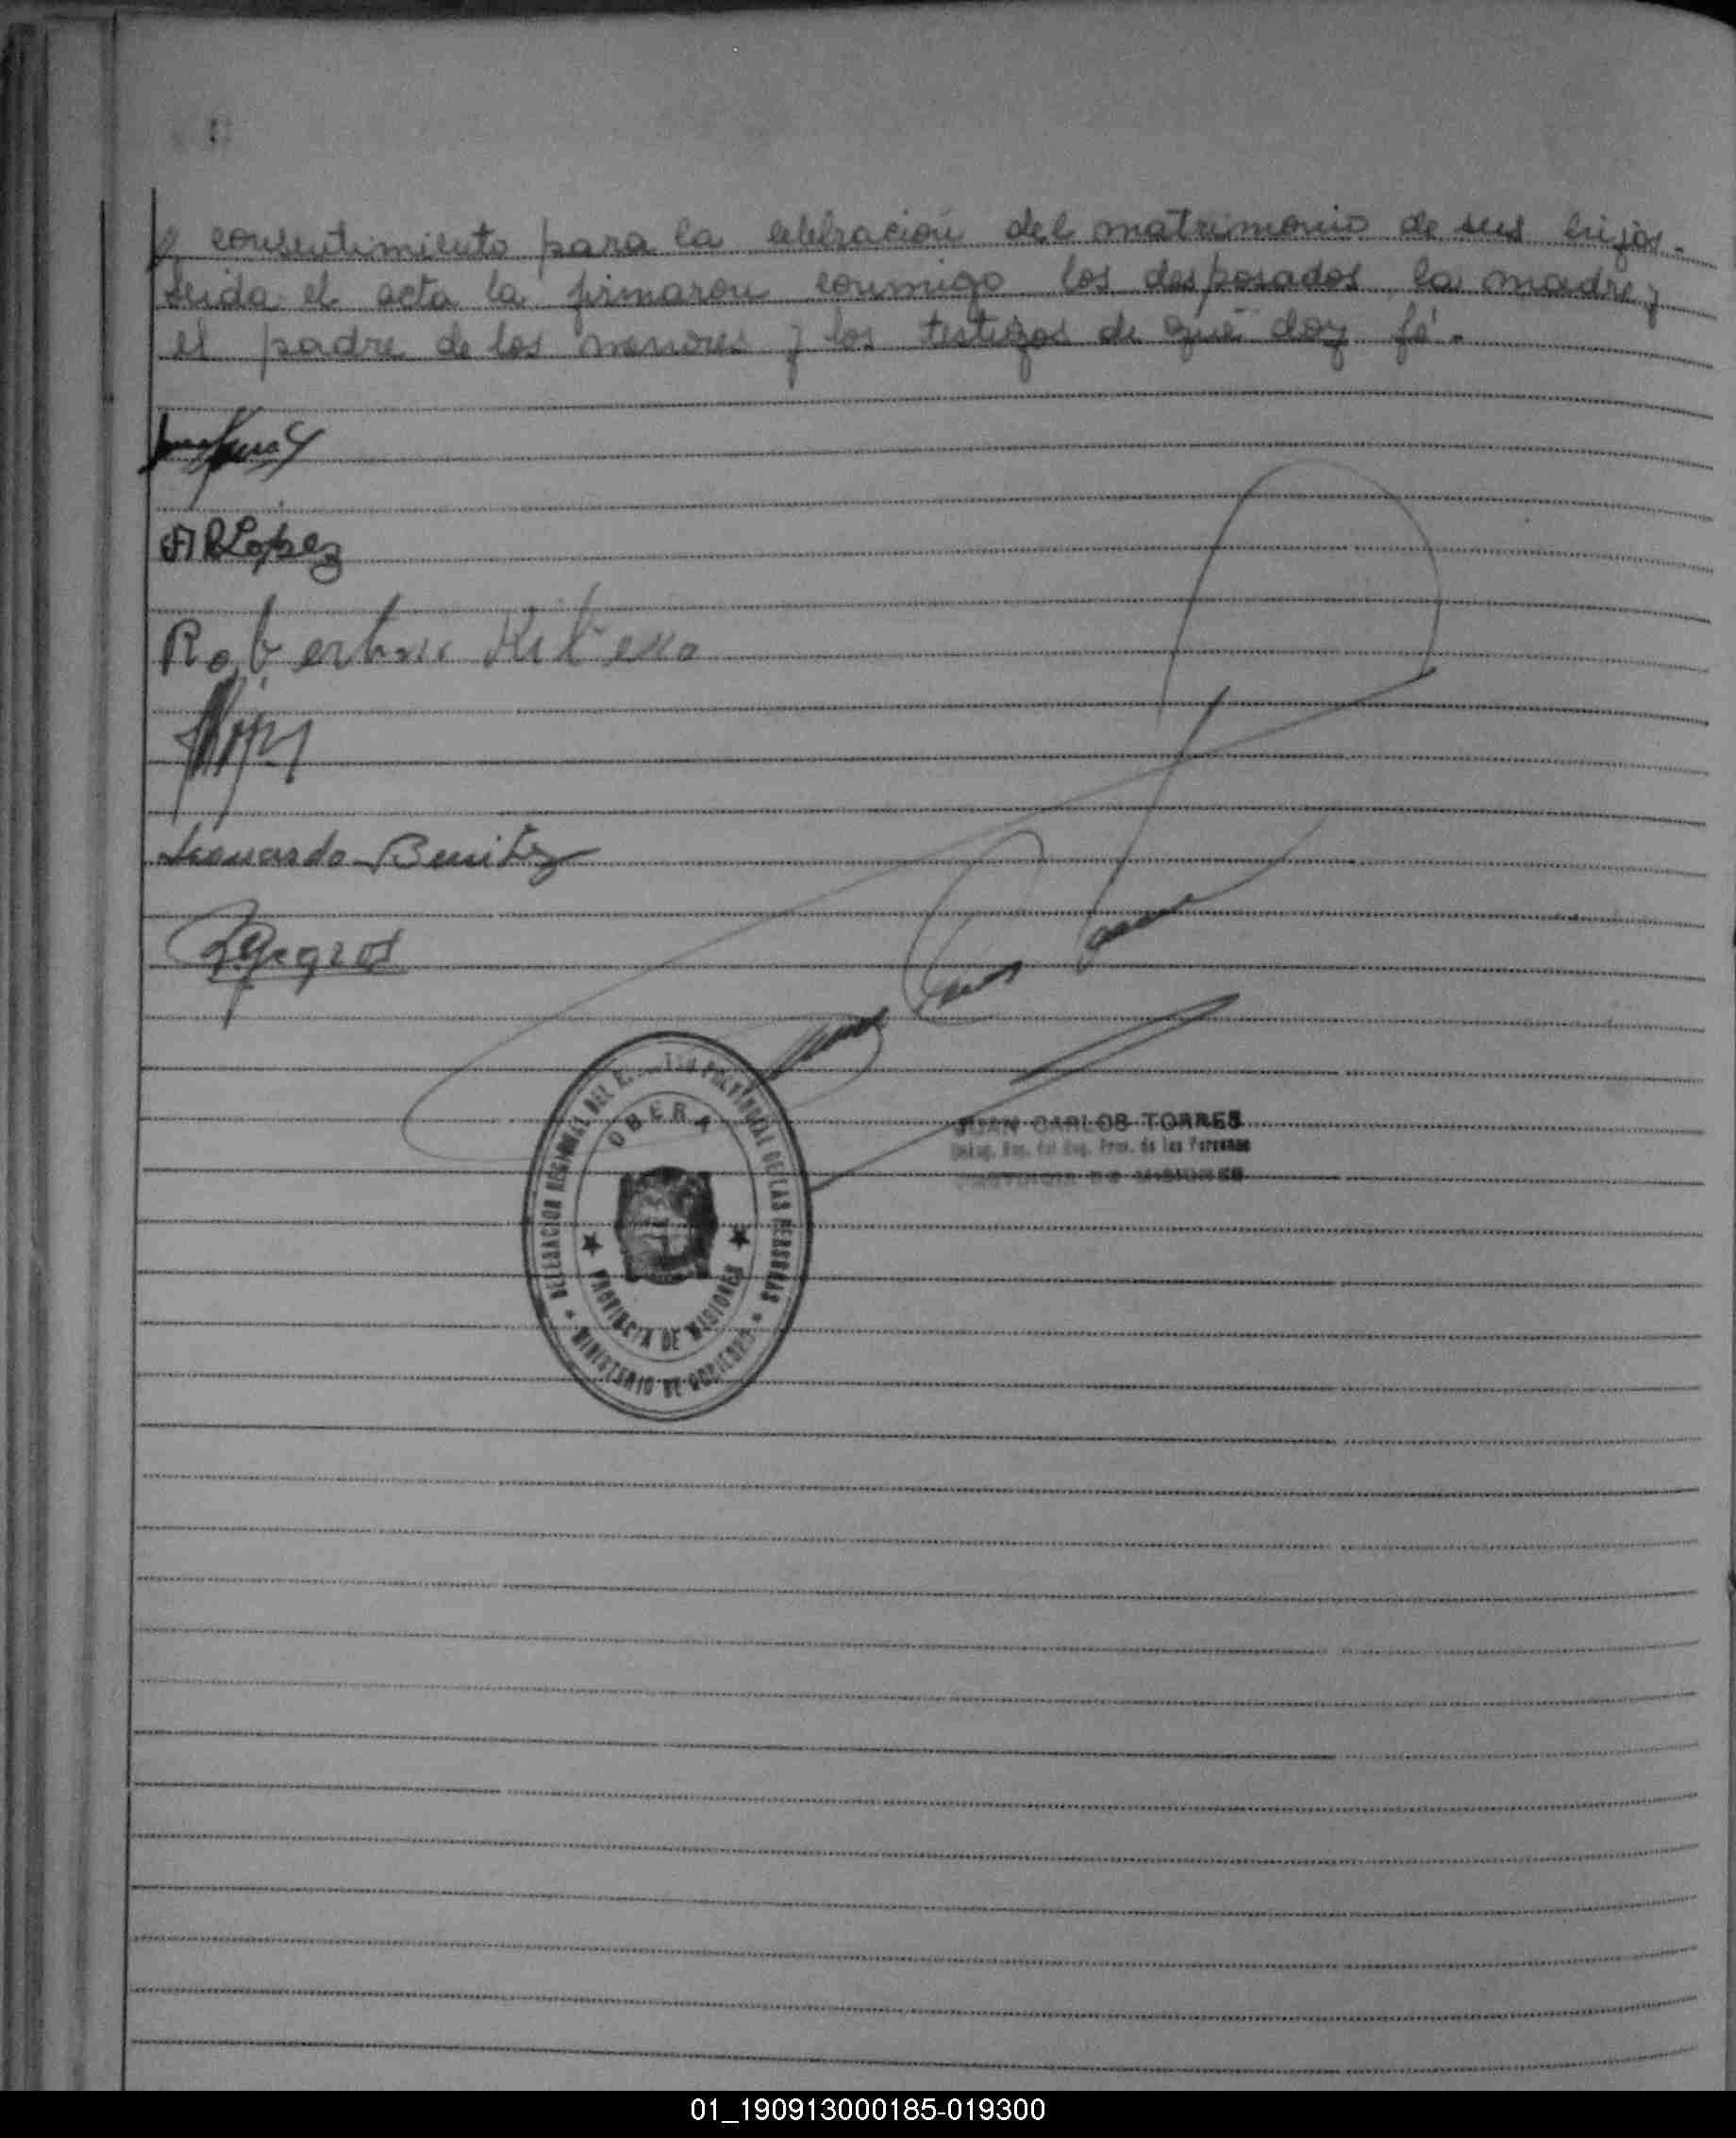 consentimiento para la celebración del matrimonio de sus hijos.-
Leida el acta la firmaron conmigo los desposados, la madre y
el padre de los menores y los testigos de que doy fé.-
A R Lopez
Leonardo Benitez
DELEGACION REGIONAL DEL PROVINCIAL DE LAS PERSONAS
OBERA
PROVINCIA DE MISIONES
MINISTERIO DE GOBIERNO
JUAN CARLOS TORRES
Deleg. Reg. del Reg. Prov. de las Personas
PROVINCIA DE MISIONES
01_190913000185-019300